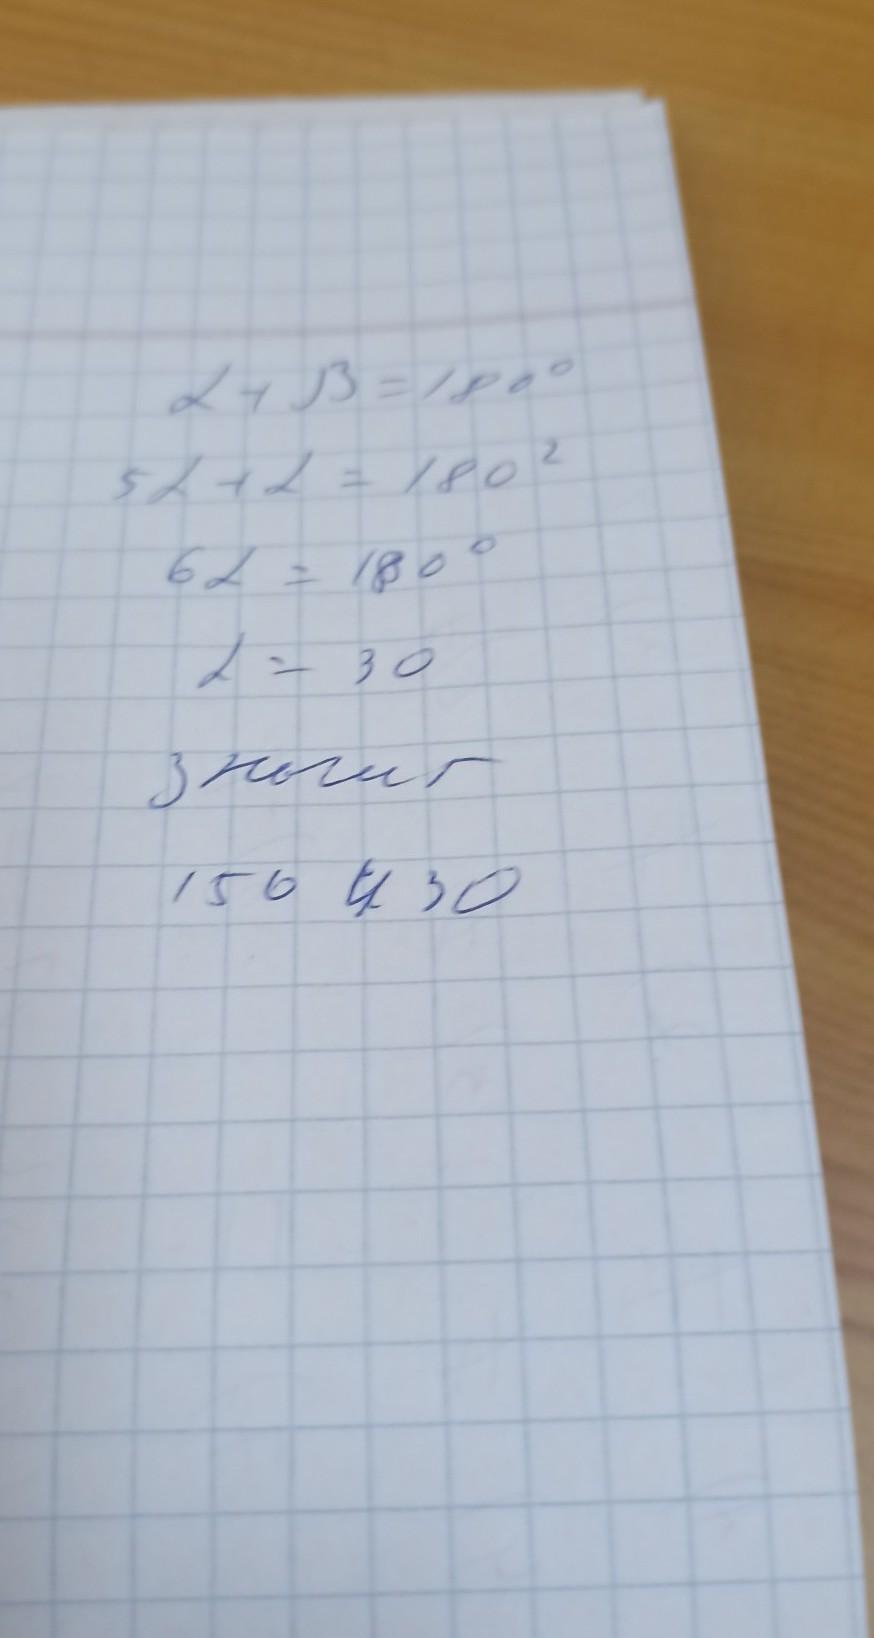 α + β = 180°
5α + α = 180²
6α = 180°
α = 30
значит
150 и 30